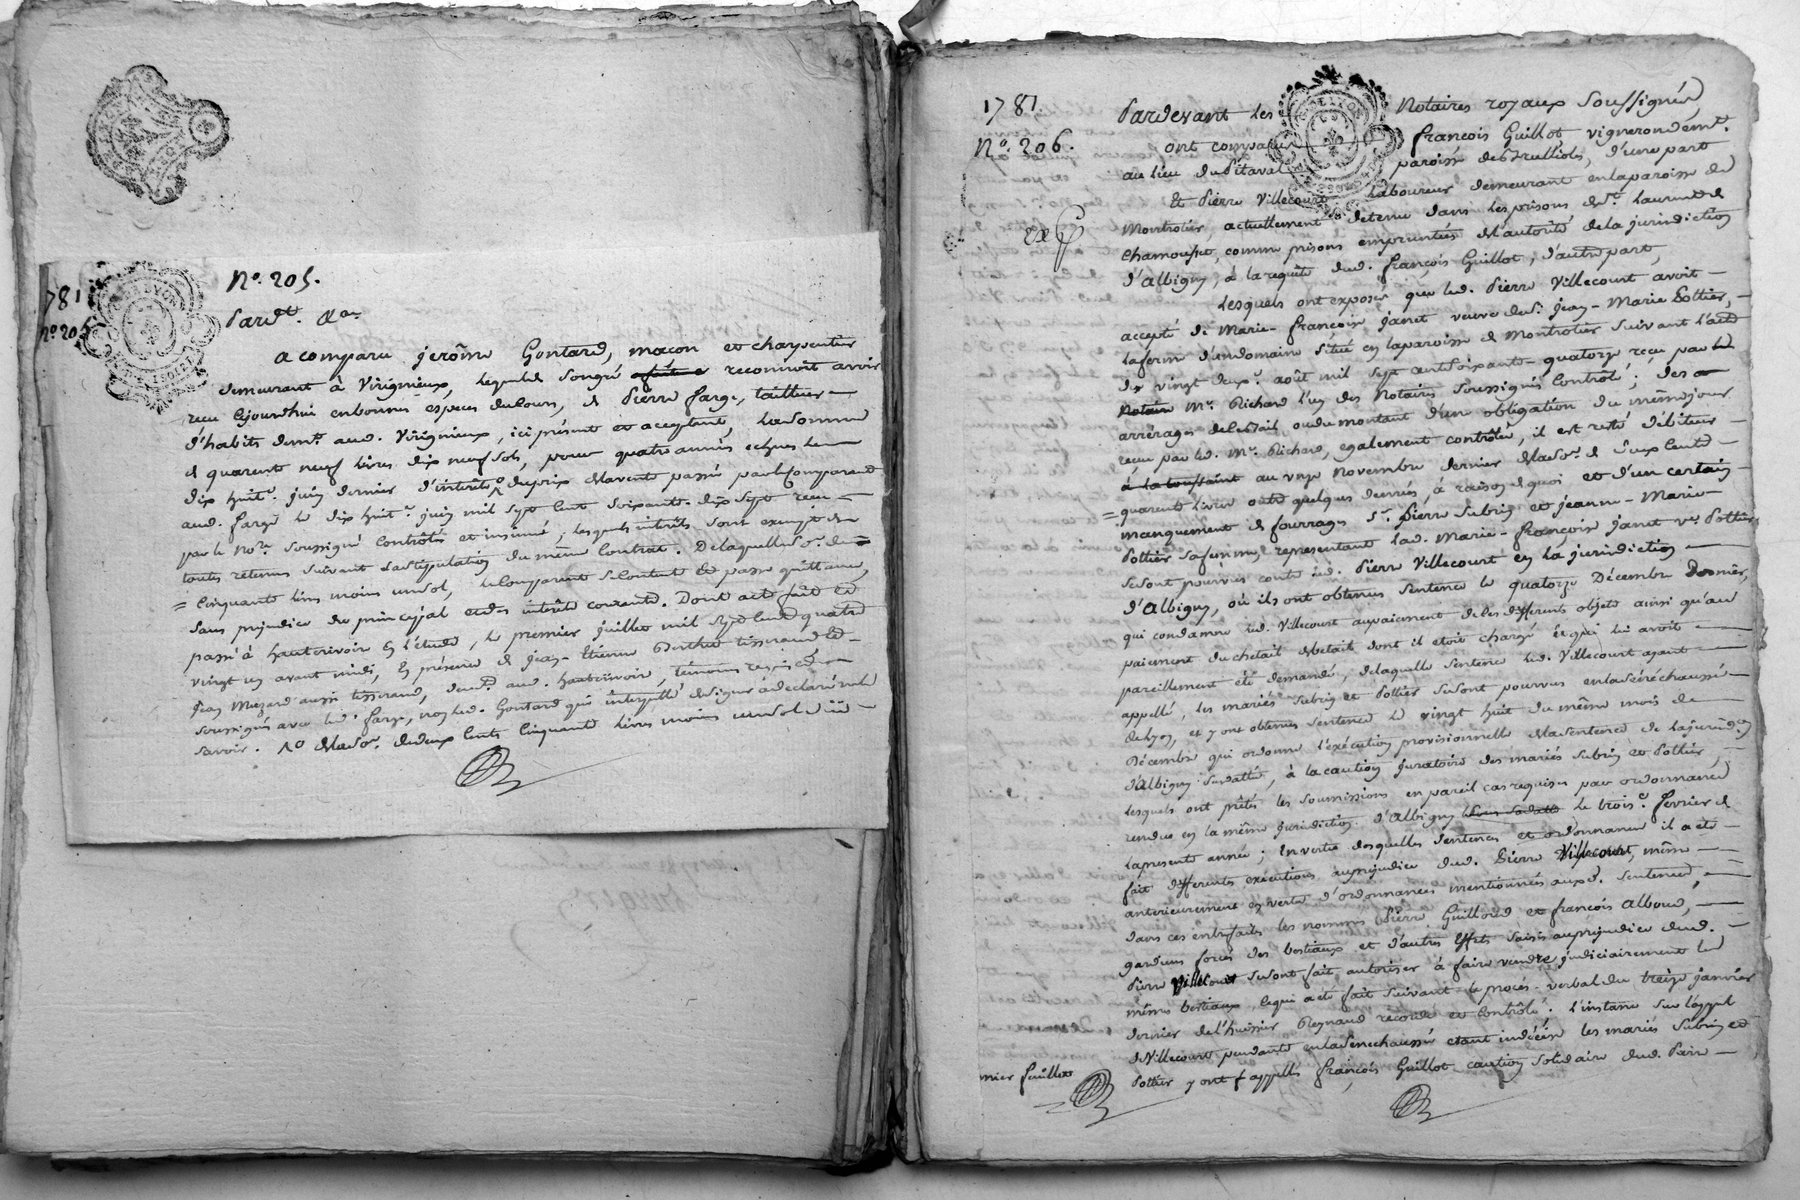 1781
No. 205
No. 205.
Pardt. &a.
a comparu jerôme Gontard, macon et charpentier
demeurant à Virignieux, lequel de son gré reconnoit avoir
reçu cejourdhui en bonnes especes du cours, de Pierre farge, tailleur
d'habits demt. aud. Virignieux, ici présent et acceptant, la somme
de quarente neuf livres dix neuf sols, pour quatre années echues le
dix huit. juin dernier d'interêts du prix de la vente passée par le Comparant
aud. farge le dix huit. juin mil sept cent soixante-dix sept reçu
par le Nore. soussigné Contrôlée et insinuée, lesquels intérêts sont exempts de
toutes retenues suivant la stipulation du même Contrat. De laquelle se. de
= Cinquante livres moins un sol, le Comparant se contente et passe quittance,
sans prejudice du principal et des intérêts courents. Dont acte fait et
passé à hauterivoir en l'étude, le premier juillet mil sept cent quatre
vingt un avant midi, en présence de jean-Etienne Berthet tisserand et
jean Muzard aussi tisserand, demts. aud. hauterivoir, témoins requis et
soussignés avec led. farge, non led. Gontard qui interpellé de signer a declaré ne le
savoir. de la se. de deux cents Cinquante livres moins un sol
1781.
No. 206.
Pardevant les Notaires royaux soussignés
ont comparu françois Guillot vigneron demt.
au lieu du Pitaval paroisse des brulliols, d'une part
Et Pierre Villecourt Laboureur demeurant en la paroisse de
Montrotier, actuellement detenu dans les prisons de St. Laurent de
Chamousset comme prisons empruntées de l'autorité de la jurisdiction
d'Albigny, à la requête dud. françois Guillot, d'autre part,
Lesquels ont exposés que led. Pierre Villecourt avoit
accepté de Marie-françoise janet veuve de Sr. jean-Marie Pottier,
la ferme d'un domaine situé en la paroisse de Montrotier suivant l'acte
du vingt deux. août mil sept cent soixante-quatorze reçu par
Notaire Me. Richard l'un des Notaires soussignés Contrôlé; des
arrérages de le bail ou du montant d'une obligation du même jour
reçue par led. Me. Richard, egalement contrôlée, il est resté débiteur
à la toussaint au onze Novembre dernier de la se. de deux cents
= quarente livres outre quelques denrées, à raison de quoi et d'un certain
manquement de fourrages Sr. Pierre Subrin et jeanne-Marie
Pottier sa femme, representant lad. Marie-françoise janet ve. Pottier
se sont pourvus contre led. Pierre Villecourt en la jurisdiction
d'Albigny, où ils ont obtenus sentence le quatorze Décembre Dernier,
qui condamne led. Villecourt au paiement de les différents objets ainsi qu'au
paiement du chetail de bétail dont il etoit chargé & qui lui avoit
pareillement été demandé, de laquelle sentence led. Villecourt ayant
appellé, les mariés Subrin et Pottier se sont pourvus en la sénéchaussée
de Lyon, et y ont obtenus sentence le vingt huit du même mois de
Décembre qui ordonne l'exécution provisionnelle de la sentence de la jurisdon.
d'Albigny susdatté, à la caution juratoire des mariés Subrin et Pottier,
lesquels ont prêtés les soumissions en pareil cas requises par ordonnance
rendue en la même jurisdiction d'Albigny le trois. février de
la presente année; En vertu desquelles sentences et ordonnance il a été
fait differentes exécutions au prejudice dud. Pierre Villecourt, même
anterieurement en vertu d'ordonnances mentionnées auxd. sentences,
dans ces entrefaits les nommés Pierre Guilloud et françois Alboud,
gardiens forcés des bestiaux et d'autres effets saisis au prejudice dud.
Pierre Villecourt se sont fait autoriser à faire vendre judiciairement les
mêmes bestiaux, ce qui a été fait suivant le procès-verbal du treize janvier
dernier de l'huissier Reynaud recordé et Contrôlé. L'instance sur l'appel
de Villecourt pendante en la sénéchaussée etant indécise les mariés Subrin et
Pottier y ont appellés françois Guillot caution solidaire dud. Pierre
mier feuillet